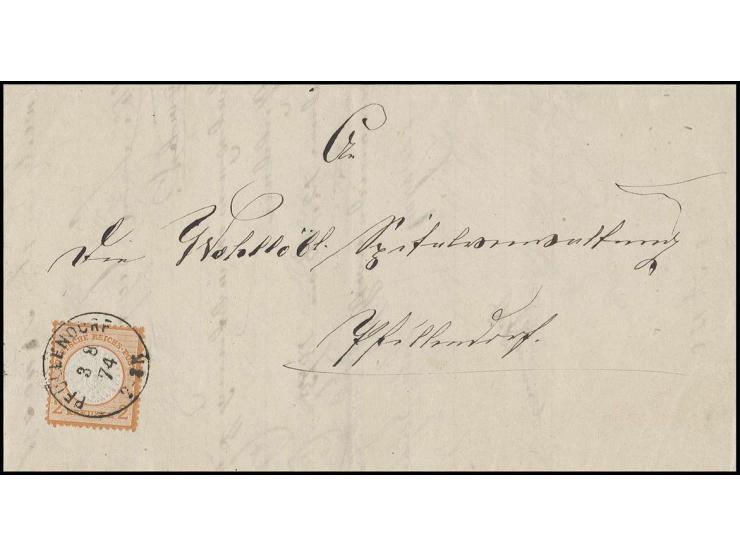 An
Die Wohllöbl. Spitalverwaltung
Pfullendorf.
PFULLENDORF
3 8
74
DEUTSCHE REICHS-POST
2 2